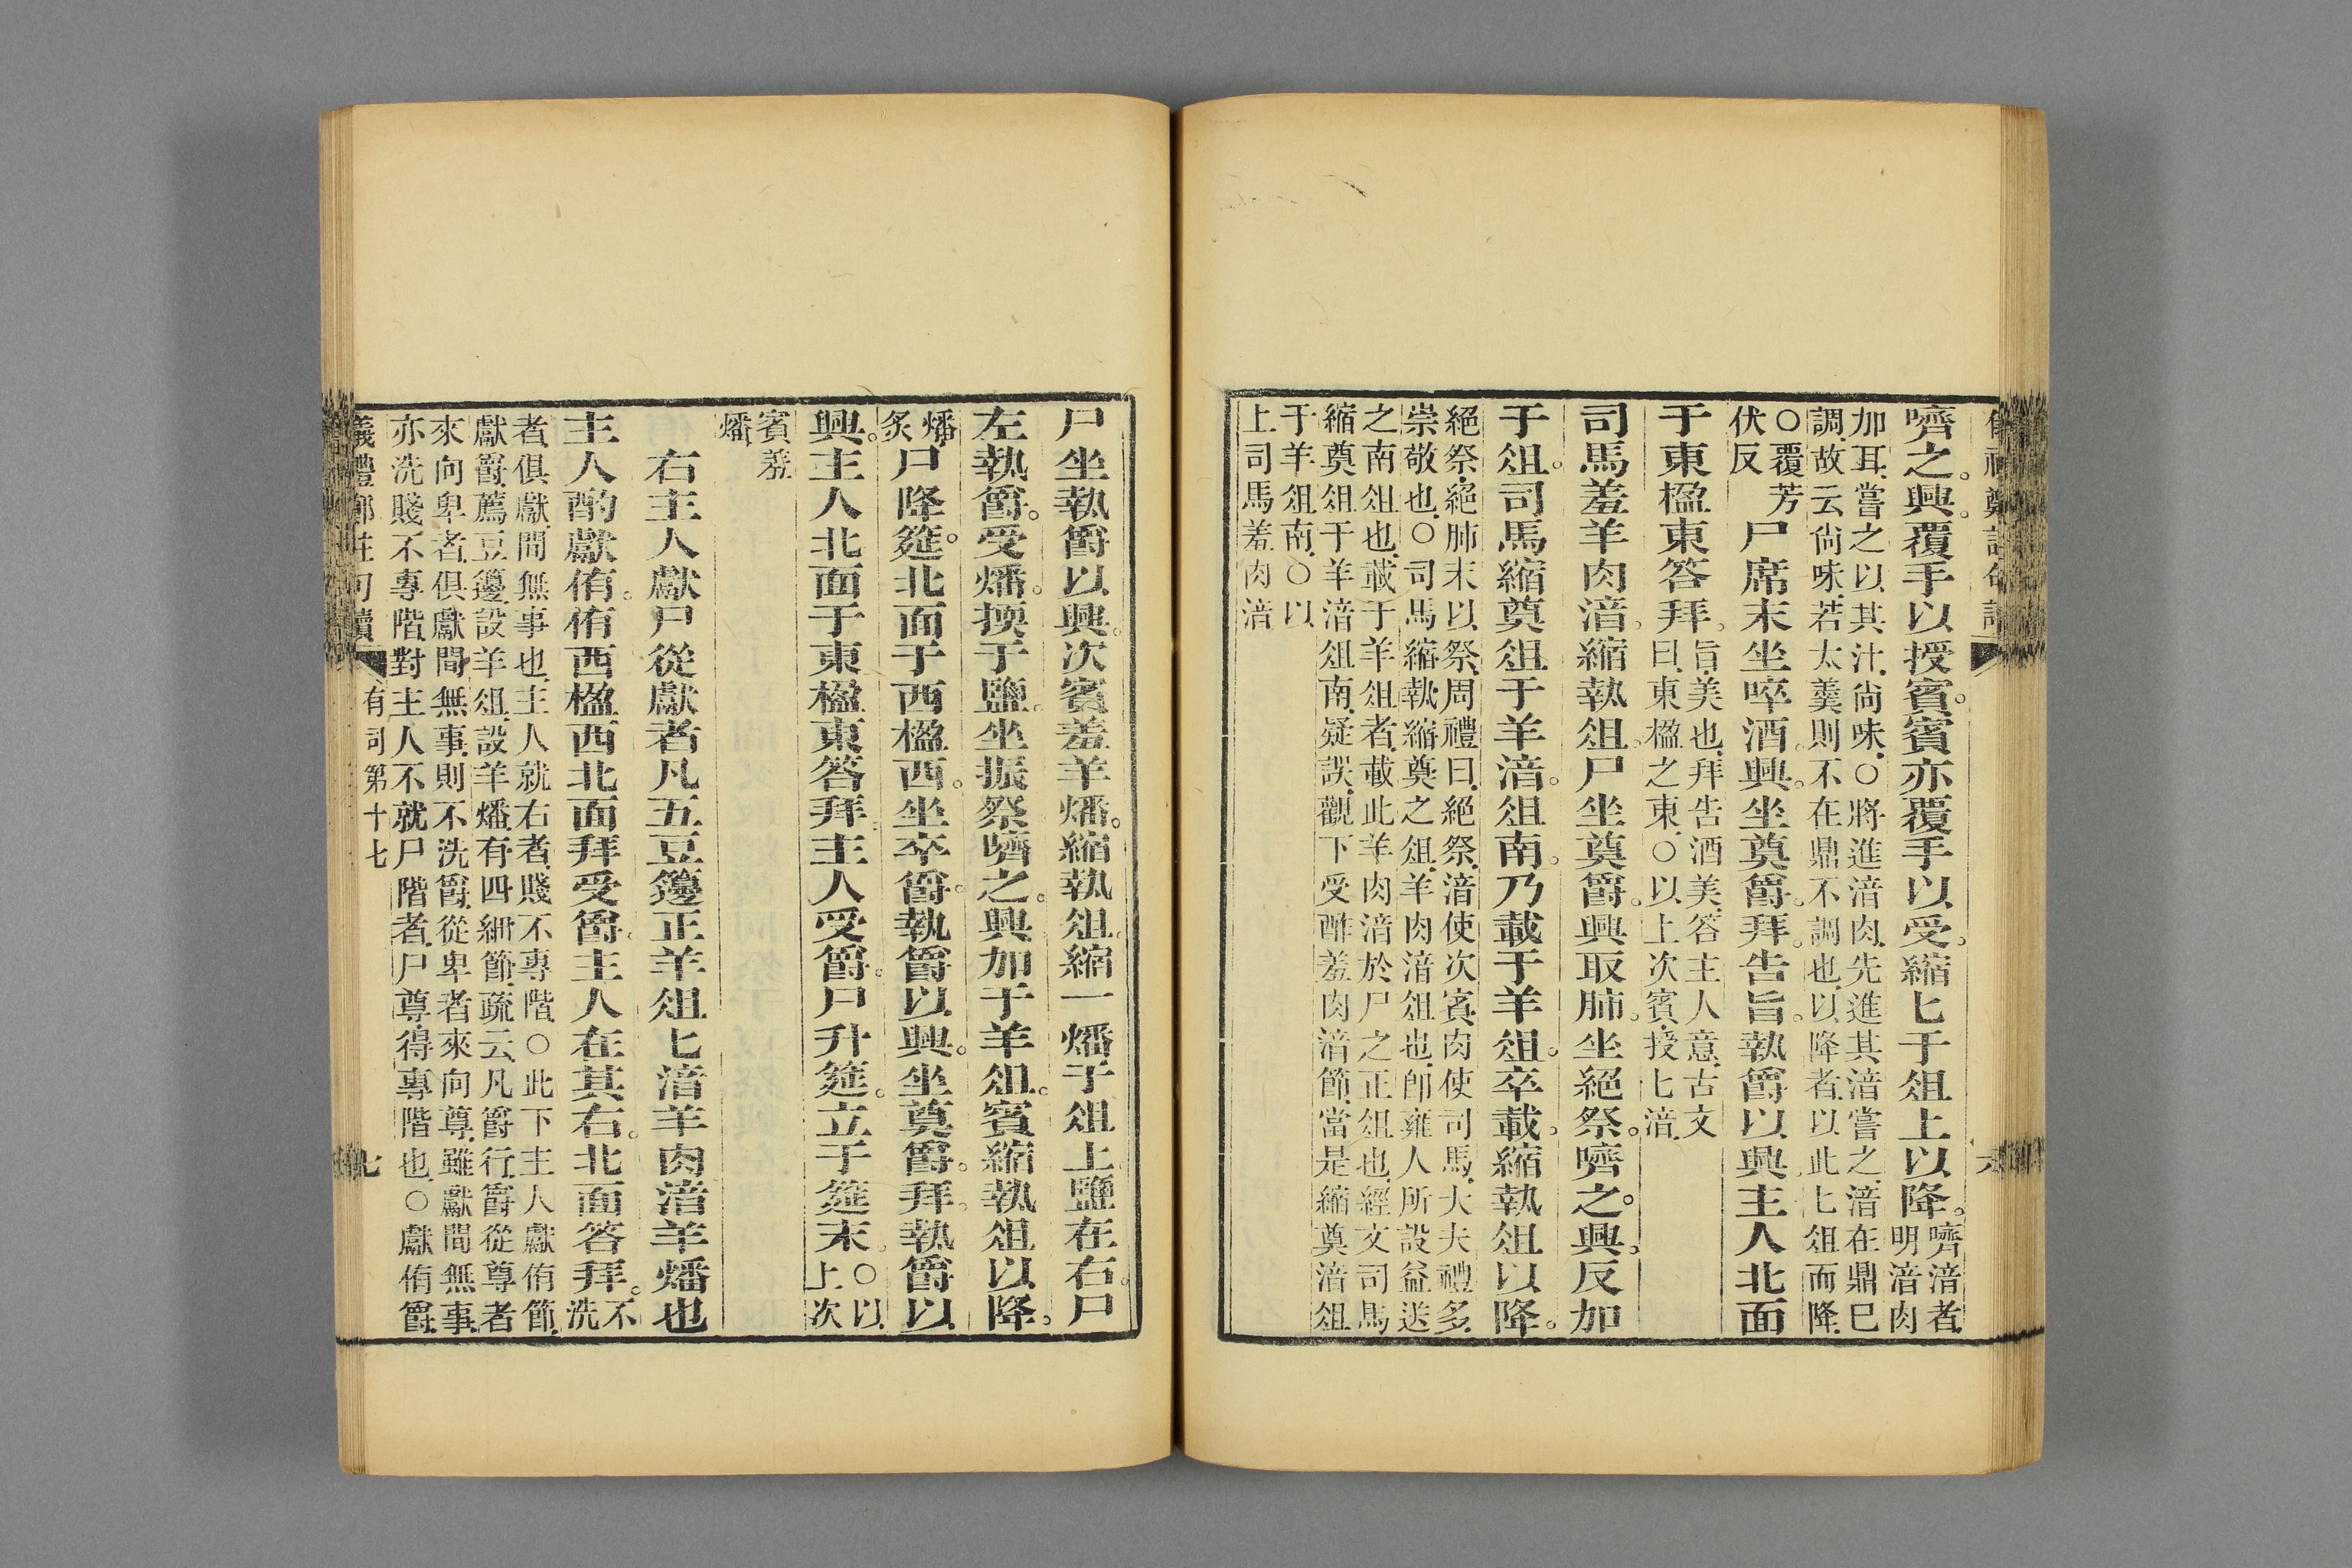 嚌之。興。覆手以授賓。賓亦覆手以受。縮匕于俎上以降。嚌湆者
明湆肉
加耳。嘗之以其汁。尙味。○將進湆肉。先進其湆嘗之。湆在鼎已
調。故云尙味。若太羹則不在鼎不調也。以降者。以此匕俎而降。
○覆芳
伏反
尸席末坐啐酒。興。坐奠爵。拜。告旨。執爵以興。主人北面
于東楹東答拜。旨。美也。拜告酒美。答主人意。古文
曰。東楹之東。○以上次賓授匕湆。
司馬羞羊肉湆。縮執俎。尸坐奠爵。興取肺。坐絕祭。嚌之。興。反加
于俎。司馬縮奠俎于羊湆。俎南。乃載于羊俎。卒載。縮執俎以降。
絕祭。絕肺末以祭。周禮曰。絕祭。湆使次賓。肉使司馬。大夫禮多。
崇敬也。○司馬縮執縮奠之俎。羊肉湆俎也。卽雍人所設益送
之南俎也。載于羊俎者。載此羊肉湆於尸之正俎也。經文司馬
縮奠俎于羊湆俎南。疑誤。觀下受酢羞肉湆節。當是縮奠湆俎
于羊俎南。○以
上司馬羞肉湆
六
尸坐執爵以興。次賓羞羊燔。縮執俎。縮一燔于俎上。鹽在右。尸
左執爵。受燔。㨎于鹽。坐振祭。嚌之。興加于羊俎。賓縮執俎以降。
燔
炙
尸降筵。北面于西楹西。坐卒爵。執爵以興。坐奠爵。拜。執爵以
興。主人北面于東楹東答拜。主人受爵。尸升筵。立于筵末。○以
上次
賓羞
燔
右主人獻尸從獻者凡五豆籩正羊俎匕湆羊肉湆羊燔也
主人酌獻侑。侑西楹西北面拜受爵。主人在其右。北面答拜。不
洗
者。俱獻。間無事也。主人就右者。賤不專階。○此下主人獻侑節。
獻爵。薦豆籩。設羊俎。設羊燔。有四細節。疏云。凡爵行。爵從尊者
來向卑者。俱獻間無事。則不洗爵。從卑者來向尊。雖獻間無事。
亦洗。賤不專階。對主人不就尸階者。尸尊得專階也。○獻侑爵。
儀禮鄭註句讀
有司第十七
七